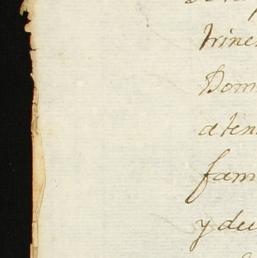 trine
Dom
aten
fam
y de